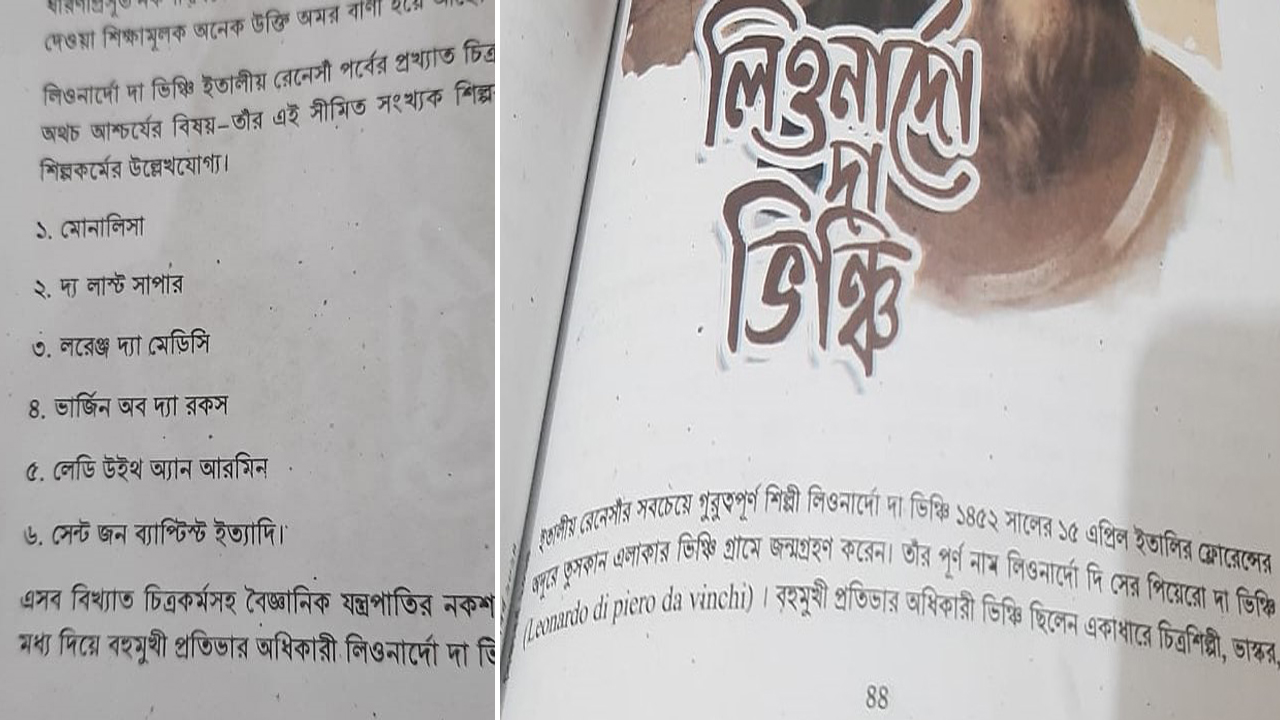 দেওয়া শিক্ষামূলক অনেক উক্তি অমর বাণী হয়ে
লিওনার্দো দা ভিঞ্চি ইতালীয় রেনেসাঁ পর্বের প্রখ্যাত চিত্র
অথচ আশ্চর্যের বিষয়–তাঁর এই সীমিত সংখ্যক শিল্প
শিল্পকর্মের উল্লেখযোগ্য।
১. মোনালিসা
২. দ্য লাস্ট সাপার
৩. লরেঞ্জ দ্যা মেডিসি
৪. ভার্জিন অব দ্যা রকস
৫. লেডি উইথ অ্যান আরমিন
৬. সেন্ট জন ব্যাপ্টিস্ট ইত্যাদি।
এসব বিখ্যাত চিত্রকর্মসহ বৈজ্ঞানিক যন্ত্রপাতির নকশ
মধ্য দিয়ে বহুমূখী প্রতিভার অধিকারী লিওনার্দো দা ভি
লিওনার্দো
দা
ভিঞ্চি
ইতালীয় রেনেসাঁর সবচেয়ে গুরুত্বপূর্ণ শিল্পী লিওনার্দো দা ভিঞ্চি ১৪৫২ সালের ১৫ এপ্রিল ইতালির ফ্লোরেন্সের
অদূরে তুসকান এলাকার ভিঞ্চি গ্রামে জন্মগ্রহণ করেন। তাঁর পূর্ণ নাম লিওনার্দো দি সের পিয়েরো দা ভিঞ্চি
(Leonardo di piero da vinchi) । বহুমূখী প্রতিভার অধিকারী ভিঞ্চি ছিলেন একাধারে চিত্রশিল্পী, ভাস্কর,
৪৪